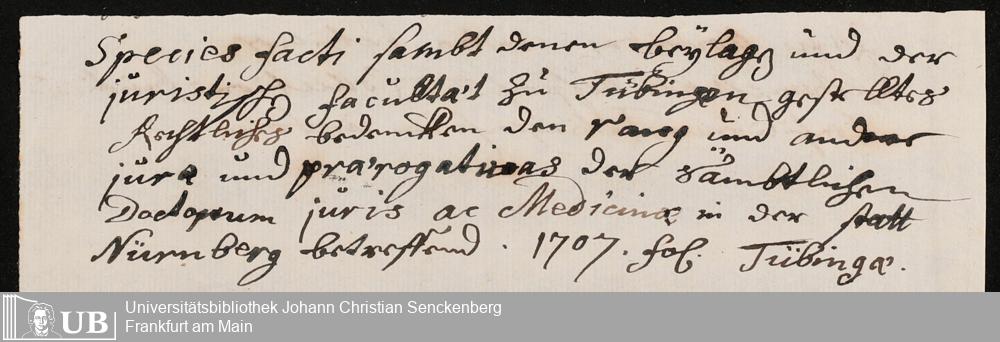 Species facti sambt denen beÿlagen und der
juristischen facultät zu Tübingen gestelltes
Rechtliches bedencken den rang und andere
jura und prærogativas der sämbtlichen
Doctorum juris ac Medicinæ in der statt
Nürnberg betreffend. 1707. fol. Tübingæ.
Universitätsbibliothek Johann Christian Senckenberg
Frankfurt am Main
UB